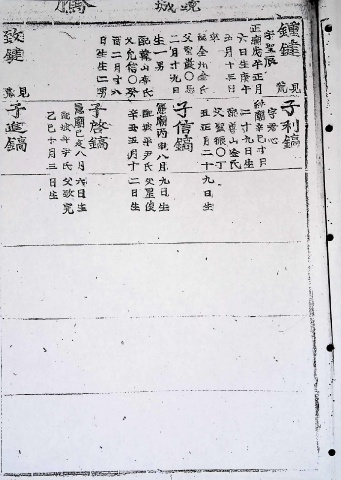 城
鍾鍵
見
字聖辰
正廟庚午正月
六日生庚午
五月十三日
卒
配金州金氏
父聖巖○忌
二月十九日
生一男
配韓山李氏
父允信○癸
酉二月廿八
日生生二男
致鍵
見
子利鎬
字君心
純廟辛巳十月
二十九日生
配善山金氏
父聖振○丁
丑正月二十九日生
子信鎬
憲廟丙申八月九日生
配坡平尹氏父星俊
辛丑五月十二日生
子啓鎬
憲廟己亥八月六日生
配坡平尹氏父敬完
乙巳十月三日生
子進鎬